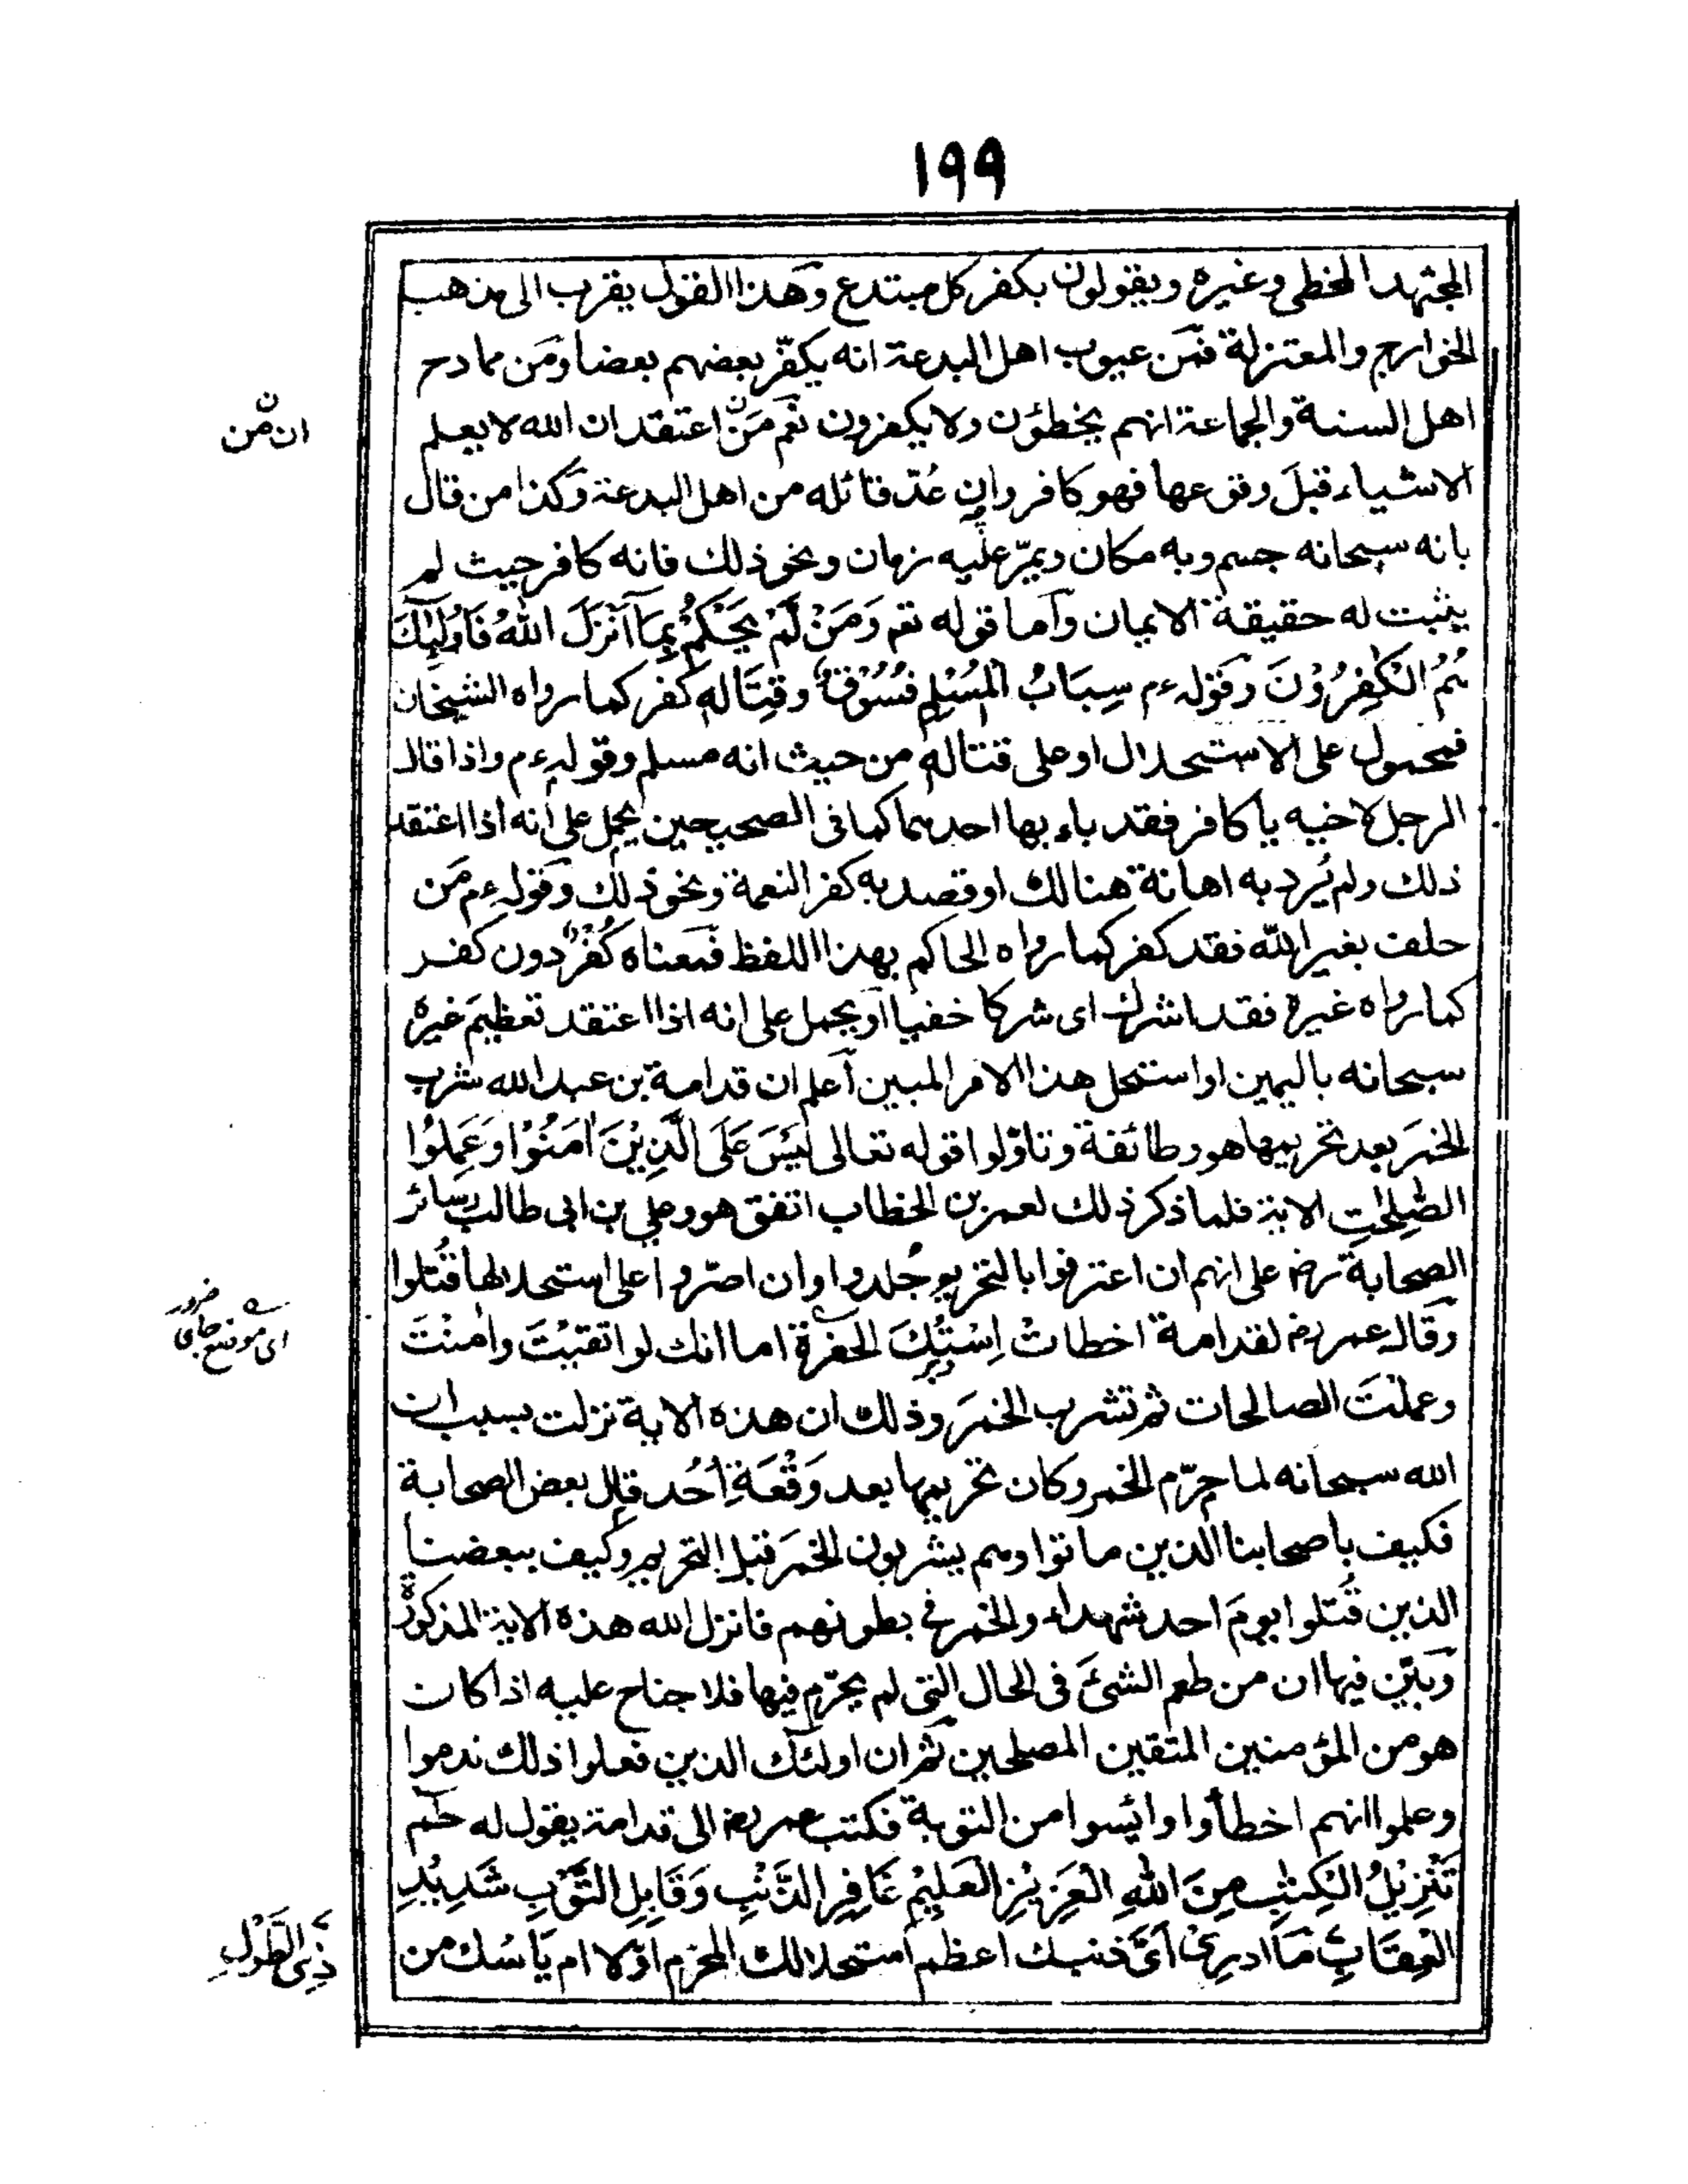 ١٩٩
المجتهد المخطى وغيره ويقولون بكفر كل مبتدع وهذا القول يقرب الى مذهب
الخوارج والمعتزلة فمن عيوب اهل البدعة انه يكفّر بعضهم بعضا ومن ممادح
اهل السنة والجماعة انهم يخطئون ولا يكفرون نعم مَن اعتقد ان الله لا يعلم
ان من
الاشياء قبلَ وقوعها فهو كافر وان عُدّ قائله من اهل البدعة وكذا من قال
بانه سبحانه جسم وبه مكان ويمرّ عليه زمان ونحو ذلك فانه كافر حيث لم
يثبت له حقيقة الايمان وآما قوله تعم وَمَنْ لَّمْ يَحْكُمْ بِمَآ اَنْزَلَ اللهُ فَاُولٰٓئِكَ
هُمُ الْكٰفِرُوْنَ وقوله عم سِبَابُ الْمُسْلِمِ فُسُوْقٌ وقِتَاله كفر كما رواه الشيخان
فمحمول على الاستحلال او على قتاله من حيث انه مسلم وقوله عم واذا قال
الرجل لاخيه يا كافر فقد باء بها احدهما كما فى الصحيحين يحمل على انه اذا اعتقد
ذلك ولم يُرد به اهانة هنالك او قصد به كفر النعمة ونحو ذلك وقوله عم مَن
حلف بغير الله فقد كفر كما رواه الحاكم بهذا اللفظ فمعناه كُفْرٌ دون كفر
كما رواه غيره فقد اشرك اى شركا خفيا او يحمل على انه اذا اعتقد تعظيمَ غيره
سبحانه باليمين او استحل هذا الامر المبين آعلم ان قدامة بن عبد الله شرب
الخمرَ بعد تحريمها هو وطائفة وتاوّلوا قوله تعالى لَيْسَ عَلَى الَّذِيْنَ اٰمَنُوْا وَعَمِلُوا
الصّٰلِحٰتِ الاية فلما ذكر ذلك لعمر بن الخطاب اتفق هو وعلي بن ابى طالب وسائر
الصحابة رض على انهم ان اعترفوا بالتحريم جُلدوا وان اصرّوا على استحلالها قُتلوا
وقال عمر رض لقدامة اخطاتْ اِسْتُكَ الحفرة اما انك لو اتقيْتَ واٰمنْتَ
اى موضع جاى ضرور
وعملتَ الصالحات ثم تشرب الخمرَ وذلك ان هذه الاية نزلت بسبب ان
الله سبحانه لما حرّم الخمر وكان تحريمها بعد وَقْعَةِ اُحُد قال بعض الصحابة
فكيف باصحابنا الذين ماتوا وهم يشربون الخمرَ قبل التحريم وكيف ببعضنا
الذين قُتلوا يومَ احد شهداء والخمر فى بطونهم فانزل الله هذه الاية المذكورة
وبيّن فيها ان من طعم الشئَ فى الحال التى لم يحرّم فيها فلا جناح عليه اذا كان
هو من المؤمنين المتقين المصلحين ثم ان اولئك الذين فعلوا ذلك ندموا
وعلموا انهم اخطأوا وائيسوا من التوبة فكتب عمر رض الى قدامة يقول له حٰم
تَنْزِيْلُ الْكِتٰبِ مِنَ اللهِ الْعَزِيْزِ الْعَلِيْمِ غَافِرِ الذَّنْبِ وَقَابِلِ التَّوْبِ شَدِيْدِ
الْعِقَابِ مَا ادرِى اَىّ ذنبك اعظم استحلالك المحرم اوّلا ام يَأسُك من
ذِى الطَّوْلِ